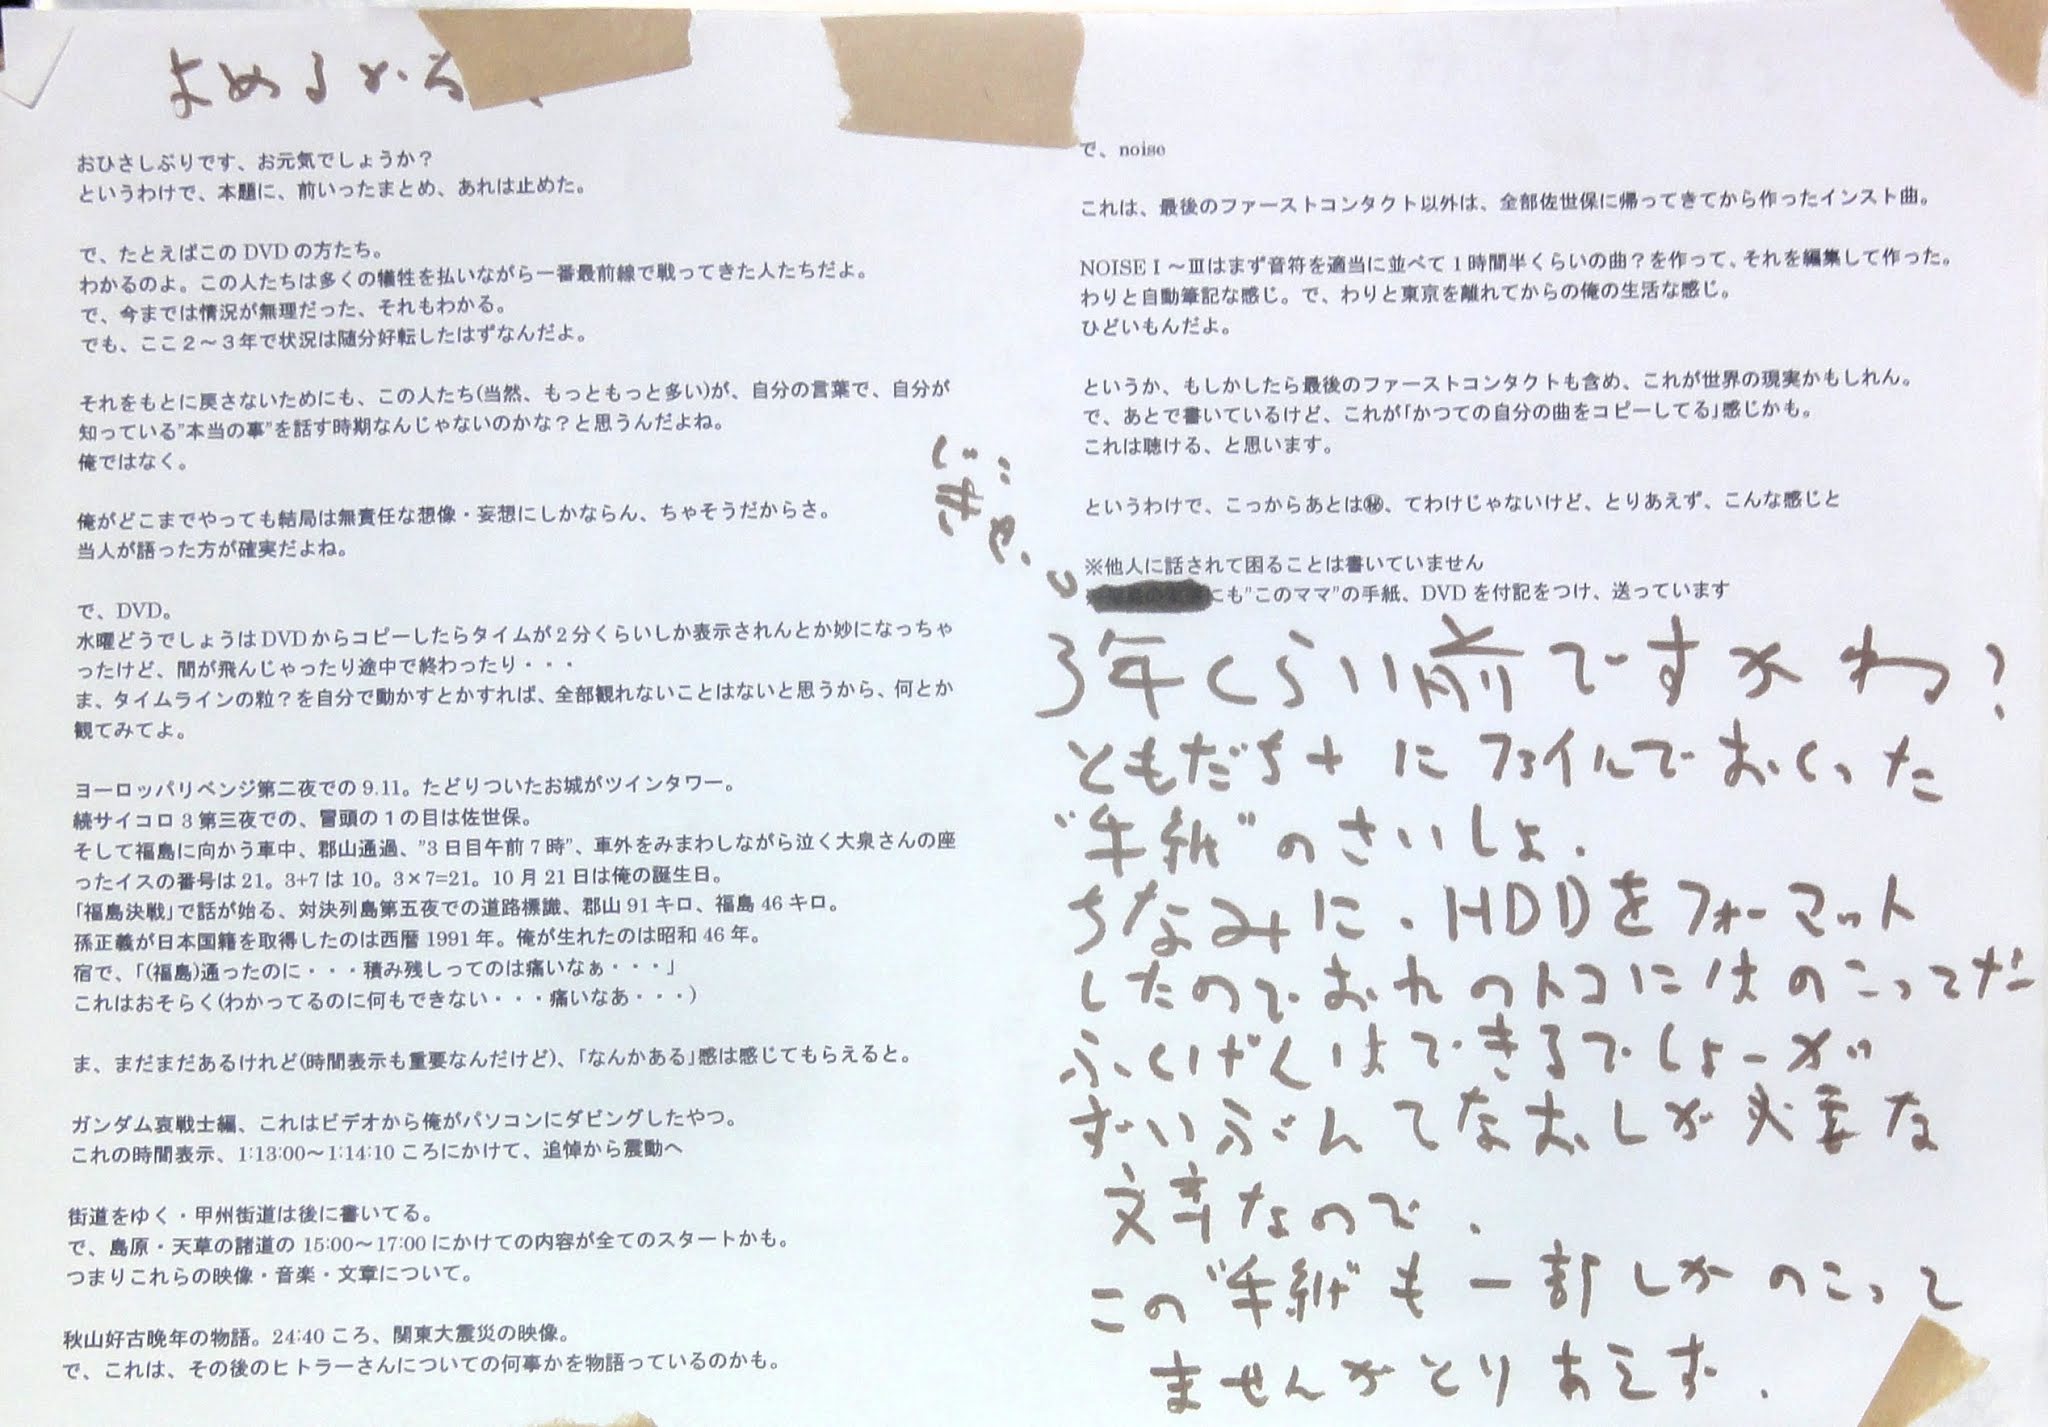 よめるかな
おひさしぶりです、お元気でしょうか？
というわけで、本題に、前いったまとめ、あれは止めた。
で、たとえばこの DVD の方たち。
わかるのよ。この人たちは多くの犠牲を払いながら一番最前線で戦ってきた人たちだよ。
で、今までは情況が無理だった、それもわかる。
でも、ここ２～３年で状況は随分好転したはずなんだよ。
それをもとに戻さないためにも、この人たち(当然、もっともっと多い)が、自分の言葉で、自分が
知っている”本当の事”を話す時期なんじゃないのかな？と思うんだよね。
俺ではなく。
俺がどこまでやっても結局は無責任な想像・妄想にしかならん、ちゃそうだからさ。
当人が語った方が確実だよね。
で、DVD。
水曜どうでしょうは DVD からコピーしたらタイムが 2 分くらいしか表示されんとか妙になっちゃ
ったけど、間が飛んじゃったり途中で終わったり・・・
ま、タイムラインの粒？を自分で動かすとかすれば、全部観れないことはないと思うから、何とか
観てみてよ。
ヨーロッパリベンジ第二夜での 9.11。たどりついたお城がツインタワー。
続サイコロ 3 第三夜での、冒頭の１の目は佐世保。
そして福島に向かう車中、郡山通過、”3 日目午前 7 時”、車外をみまわしながら泣く大泉さんの座
ったイスの番号は 21。3+7 は 10。3×7=21。10 月 21 日は俺の誕生日。
「福島決戦」で話が始る、対決列島第五夜での道路標識、郡山 91 キロ、福島 46 キロ。
孫正義が日本国籍を取得したのは西暦 1991 年。俺が生れたのは昭和 46 年。
宿で、「(福島)通ったのに・・・積み残しってのは痛いなぁ・・・」
これはおそらく(わかってるのに何もできない・・・痛いなあ・・・)
ま、まだまだあるけれど(時間表示も重要なんだけど)、「なんかある」感は感じてもらえると。
ガンダム哀戦士編、これはビデオから俺がパソコンにダビングしたやつ。
これの時間表示、1:13:00～1:14:10 ころにかけて、追悼から震動へ
街道をゆく・甲州街道は後に書いてる。
で、島原・天草の諸道の 15:00～17:00 にかけての内容が全てのスタートかも。
つまりこれらの映像・音楽・文章について。
秋山好古晩年の物語。24:40 ころ、関東大震災の映像。
で、これは、その後のヒトラーさんについての何事かを物語っているのかも。
で、noise
これは、最後のファーストコンタクト以外は、全部佐世保に帰ってきてから作ったインスト曲。
NOISE Ⅰ～Ⅲはまず音符を適当に並べて 1 時間半くらいの曲？を作って、それを編集して作った。
わりと自動筆記な感じ。で、わりと東京を離れてからの俺の生活な感じ。
ひどいもんだよ。
というか、もしかしたら最後のファーストコンタクトも含め、これが世界の現実かもしれん。
で、あとで書いているけど、これが「かつての自分の曲をコピーしてる」感じかも。
これは聴ける、と思います。
というわけで、こっからあとは㊙、てわけじゃないけど、とりあえず、こんな感じと
※他人に話されて困ることは書いていません
にも”このママ”の手紙、DVD を付記をつけ、送っています
3年くらい前ですかね？
ともだち+にファイルでおくった
"手紙"のさいしょ.
ちなみに.HDDをフォーマット
したのでおれのトコにはのこってだ
ふくげんはできるでしょーが
ずいぶんてなおしが必要な
文章なので.
この"手紙"も一部しかのこって
ませんがとりあえず.